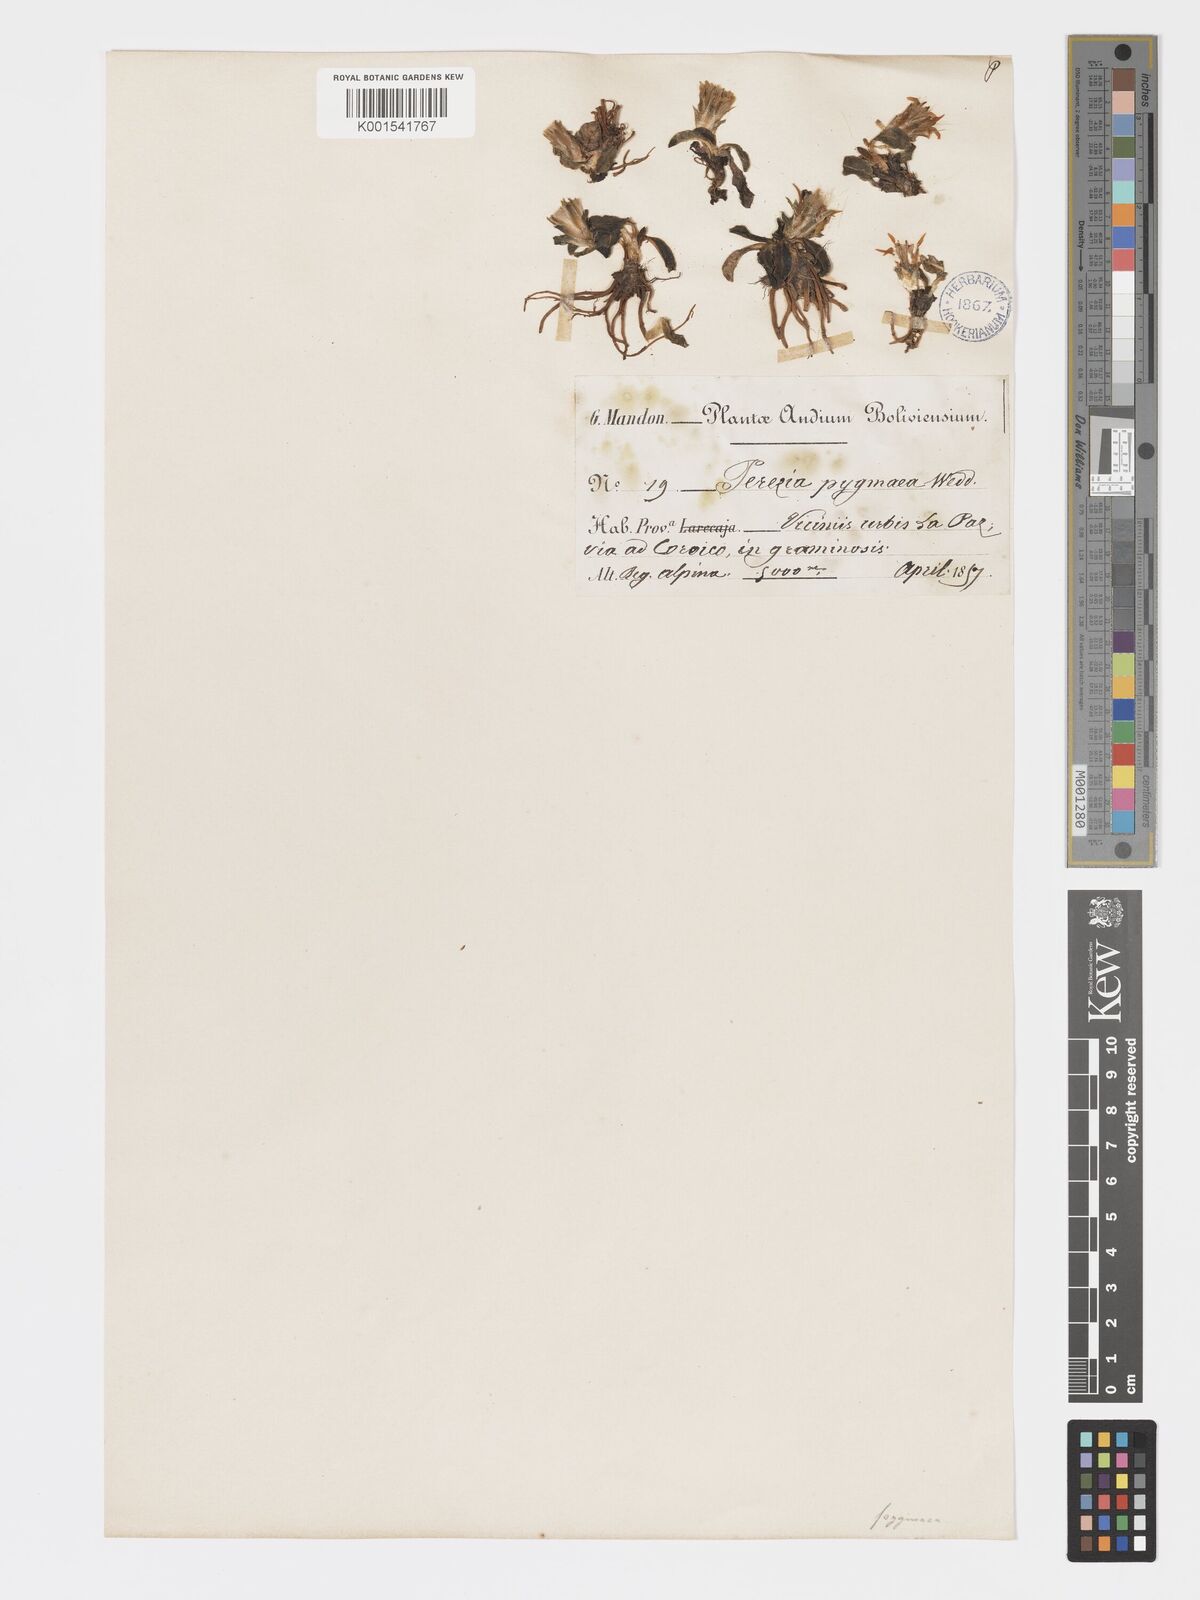 ROYAL BOTANIC GARDENS KEW
K001541767
P
HERBARIUM
1867
HOOKERIANUM
G. Mandon. — Plantæ Andium Boliviensium.
No 19. — Perezia pygmaea Wedd.
Hab. Prov.a Larecaja. — Viciniis urbis La Paz,
via ad Coroico, in graminosis.
Alt. Reg. alpina. 5000 m. April. 1857.
pygmaea
inches
centimeters
Don Williams
M001280
Royal Botanic Gardens
Kew
0 1 2 3 4 5 6 7 8 9 10
cm
copyright reserved